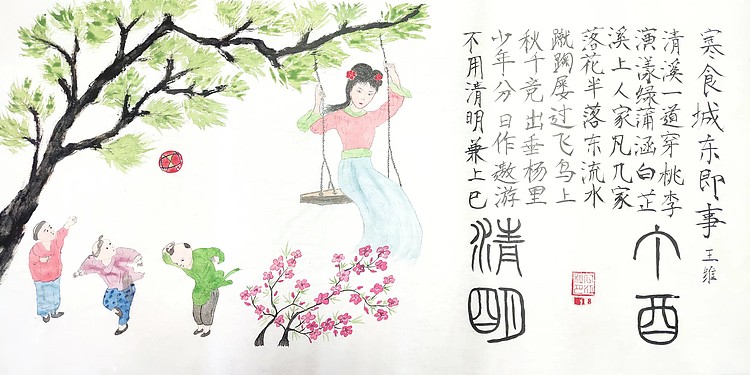 寒食城东即事
王维
清溪一道穿桃李
演漾绿蒲涵白芷
溪上人家凡几家
落花半落东流水
蹴踘屡过飞鸟上
秋千竞出垂杨里
少年分日作遨游
不用清明兼上巳
丁酉
清明